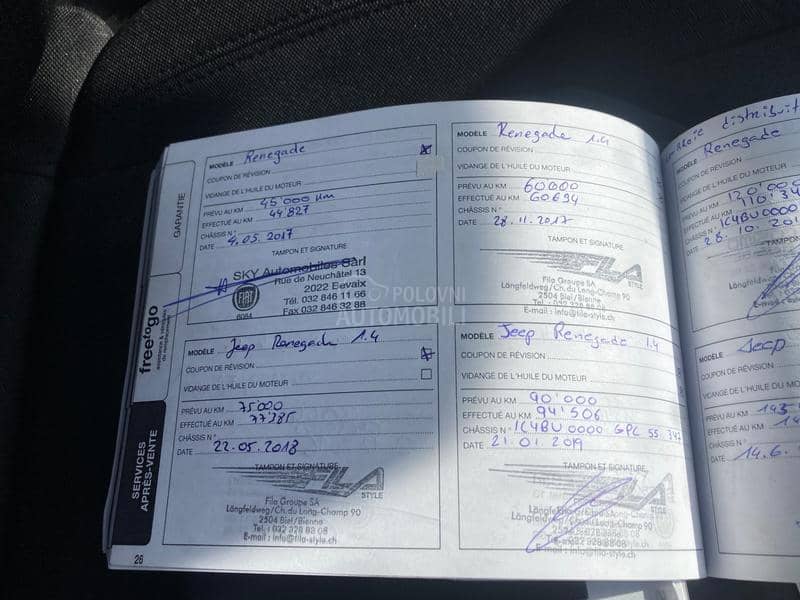 GARANTIE
freetogo
SERVICES
APRÈS-VENTE
MODÈLE Renegade
COUPON DE RÉVISION
VIDANGE DE L'HUILE DU MOTEUR
PRÉVU AU KM 45'000 km
EFFECTUÉ AU KM 44'827
CHÂSSIS N°
DATE 4.05.2017
TAMPON ET SIGNATURE
SKY Automobiles Sàrl
Rue de Neuchâtel 13
2022 Bevaix
Tél. 032 846 11 66
Fax 032 846 32 88
FIAT
6084
MODÈLE Jeep Renegade 1.4
COUPON DE RÉVISION
VIDANGE DE L'HUILE DU MOTEUR
PRÉVU AU KM 75000
EFFECTUÉ AU KM 77'285
CHÂSSIS N°
DATE 22.05.2018
TAMPON ET SIGNATURE
FILA
STYLE
Fila Groupe SA
Längfeldweg/Ch. du Long-Champ 90
2504 Biel/Bienne
E-mail : info@fila-style.ch
26
MODÈLE Renegade 1.4
COUPON DE RÉVISION
VIDANGE DE L'HUILE DU MOTEUR
PRÉVU AU KM 60000
EFFECTUÉ AU KM 60694
CHÂSSIS N°
DATE 28.11.2017
TAMPON ET SIGNATURE
FILA
STYLE
Fila Groupe SA
Längfeldweg/Ch. du Long-Champ 90
2504 Biel/Bienne
E-mail : info@fila-style.ch
MODÈLE Jeep Renegade 1.4
COUPON DE RÉVISION
VIDANGE DE L'HUILE DU MOTEUR
PRÉVU AU KM 90'000
EFFECTUÉ AU KM 94'506
CHÂSSIS N° 1C4BU0000 GPC 55
DATE 21.01.2019
TAMPON ET SIGNATURE
STYLE
2504 Biel/Bienne
info@fila-style.ch
MODÈLE Renegade
COUPON DE RÉVISION
VIDANGE DE L'HUILE DU
PRÉVU AU KM 120'000
EFFECTUÉ AU KM
CHÂSSIS N° 1C4BU0000
DATE
MODÈLE Jeep
COUPON DE RÉVISION
VIDANGE DE L'HUILE
PRÉVU AU KM
EFFECTUÉ AU KM
CHÂSSIS N°
DATE 14.6.
POLOVNI
AUTOMOBILI